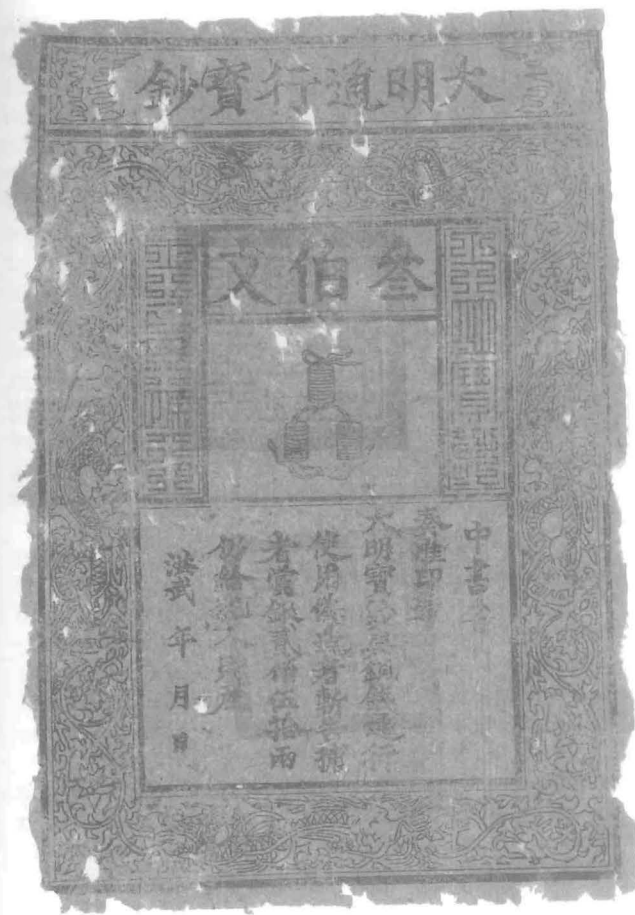 大明通行寶鈔
叁伯文
中書省
奏准印造
大明寶鈔與銅錢通行
使用偽造者斬告捕
者賞銀貳伯伍拾兩
仍給犯人財產
洪武 年 月 日